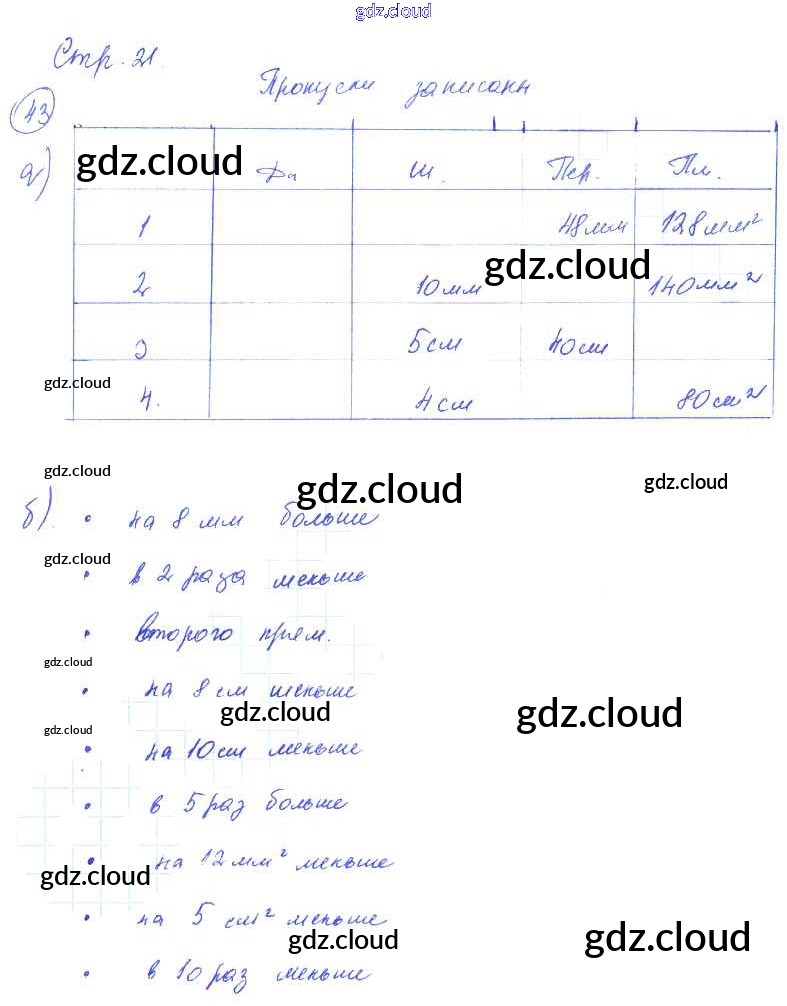 gdz.cloud
Стр. 21.
Пропуски записаны
43
а) gdz.cloud Дл Ш. Пер. Пл.
1 48мм 128мм²
gdz.cloud
2 10мм 140мм²
3 5см 40см
gdz.cloud
4. 4см 80см²
gdz.cloud gdz.cloud gdz.cloud
б). • на 8 мм больше
gdz.cloud
• в 2 раза меньше
• второго прям.
gdz.cloud
• на 8 см меньше
gdz.cloud gdz.cloud
gdz.cloud
• на 10см меньше
• в 5 раз больше
• на 12мм² меньше
gdz.cloud
• на 5 см² меньше
gdz.cloud gdz.cloud
• в 10 раз меньше